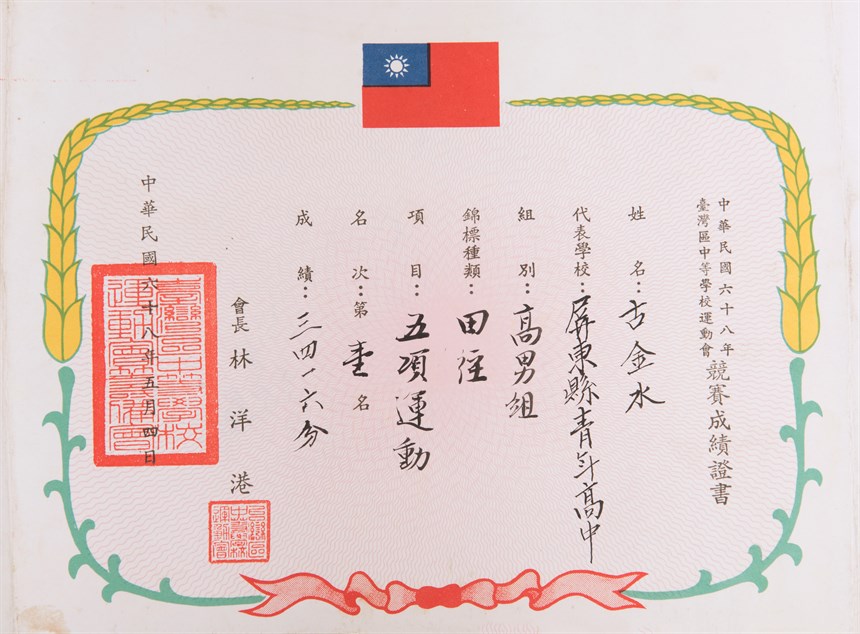 中華民國六十八年
臺灣區中等學校運動會
競賽成績證書
姓名：古金水
代表學校：屏東縣青年高中
組別：高男組
錦標種類：田徑
項目：五項運動
名次：第壹名
成績：三四一六分
會長林洋港
中華民國六十八年五月四日